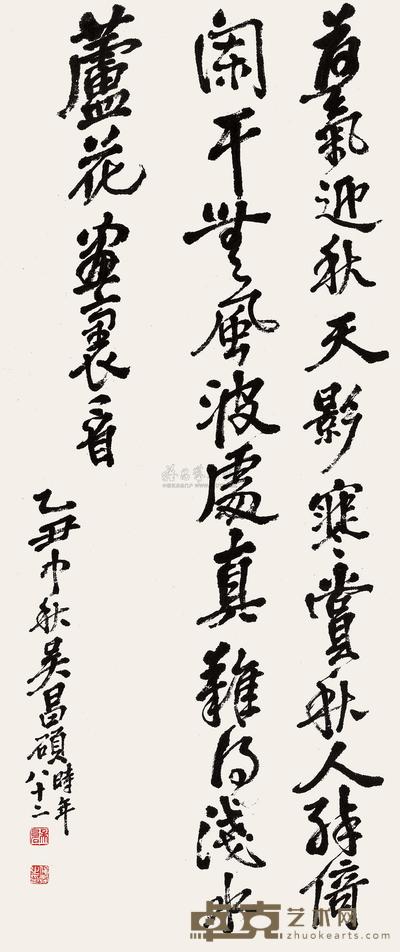 氣迎秋天影寒賞秋人倚
闌干無風波處真難得淺水
蘆花畫裏看
乙丑中秋吳昌碩時年八十二
卓克艺术网
zhuokearts.com